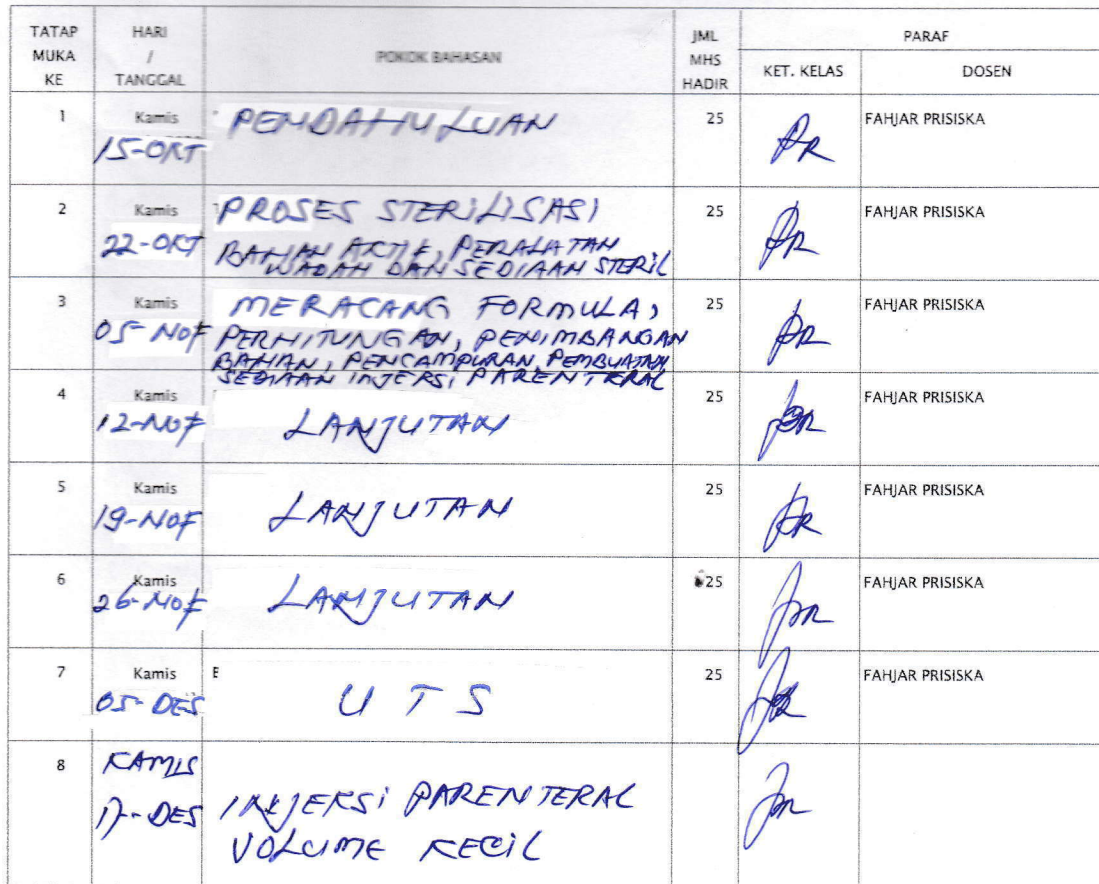 TATAP MUKA KE
HARI / TANGGAL
POKOK BAHASAN
JML MHS HADIR
PARAF
KET. KELAS
DOSEN
1
Kamis
15-OKT
PENDAHULUAN
25
FAHJAR PRISISKA
2
Kamis
22-OKT
PROSES STERILISASI
BAHAN AKTIF, PERALATAN
WADAH DAN SEDIAAN STERIL
25
FAHJAR PRISISKA
3
Kamis
05-NOF
MERACANG FORMULA,
PERHITUNGAN, PENIMBANGAN
BAHAN, PENCAMPURAN, PEMBUATAN
SEDIAAN INJEKSI PARENTERAL
25
FAHJAR PRISISKA
4
Kamis
12-NOF
LANJUTAN
25
FAHJAR PRISISKA
5
Kamis
19-NOF
LANJUTAN
25
FAHJAR PRISISKA
6
Kamis
26-NOF
LANJUTAN
25
FAHJAR PRISISKA
7
Kamis
05-DES
E
UTS
25
FAHJAR PRISISKA
8
KAMIS
17-DES
INJEKSI PARENTERAL
VOLUME KECIL